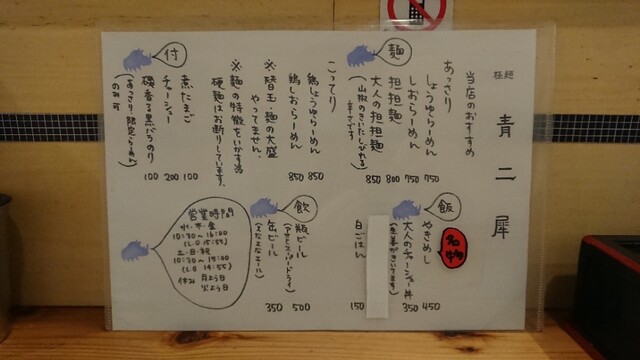 極麺 青二犀
当店のおすすめ
麺
あっさり
しょうゆらーめん 750
しおらーめん 750
担担麺 800
大人の担担麺 850
(山椒のきいたしびれる辛さです)
こってり
鶏しょうゆらーめん 850
鶏しおらーめん 850
※替玉・麺の大盛やってません。
※麺の特徴をいかす為硬麺はお断りしています。
付
煮たまご 100
チャーシュー 200
磯香る黒ばらのり 100
(あっさり限定らーめんのみ可)
飯
名物
やきめし 450
大人のチャーシュー丼 350
白ごはん 150
飲
瓶ビール 500
(アサヒスーパードライ)
缶ビール 350
(よなよなエール)
営業時間
水・木・金
10:30〜16:00
(L.O 15:55)
土・日・祝
10:30〜15:00
(L.O 14:55)
休み 月よう日
火よう日